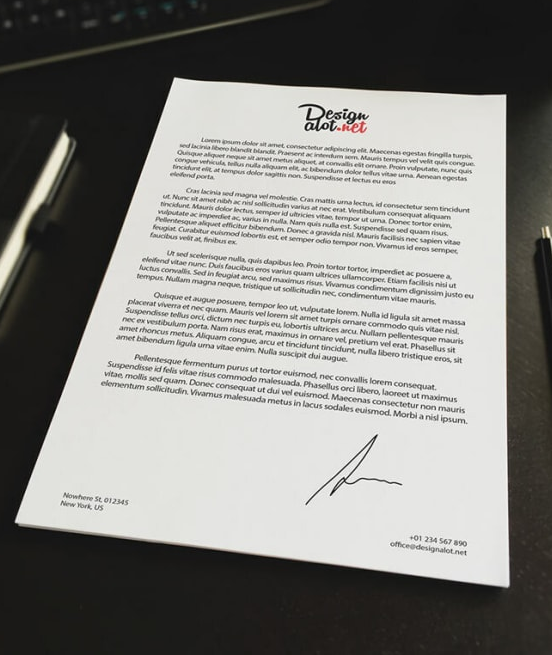 Design
alot.net
Lorem ipsum dolor sit amet, consectetur adipiscing elit. Maecenas egestas fringilla turpis,
sed lacinia libero blandit blandit. Praesent ac interdum sem. Mauris tempus vel velit quis congue.
Quisque aliquet neque sit amet metus aliquet, at convallis elit ornare. Proin vulputate, nunc quis
congue vehicula, tellus nulla aliquam elit, ac bibendum dolor tellus vitae urna. Aenean egestas
tincidunt elit, at tempus dolor sagittis non. Suspendisse et lectus eu eros
eleifend porta.
Cras lacinia sed magna vel molestie. Cras mattis urna lectus, id consectetur sem tincidunt
ut. Nunc sit amet nibh ac nisl sollicitudin varius at nec erat. Vestibulum consequat aliquam
tincidunt. Mauris dolor lectus, semper id ultricies vitae, tempor ut urna. Donec tortor enim,
vulputate ac imperdiet ac, varius in nulla. Nam quis nulla est. Suspendisse sed quam risus.
Pellentesque aliquet efficitur bibendum. Donec a gravida nisl. Mauris facilisis nec sapien vitae
feugiat. Curabitur euismod lobortis est, et semper odio tempor non. Vivamus id eros semper,
faucibus velit at, finibus ex.
Ut sed scelerisque nulla, quis dapibus leo. Proin tortor tortor, imperdiet ac posuere a,
eleifend vitae nunc. Duis faucibus eros varius quam ultrices ullamcorper. Etiam facilisis nisi ut
luctus convallis. Sed in feugiat arcu, sed maximus risus. Vivamus condimentum dignissim justo eu
tempus. Nullam magna neque, tristique ut sollicitudin nec, condimentum vitae mauris.
Quisque et augue posuere, tempor leo ut, vulputate lorem. Nulla id ligula sit amet massa
placerat viverra et nec quam. Mauris vel lorem sit amet turpis ornare commodo quis vitae nisl.
Suspendisse tellus orci, dictum nec turpis eu, lobortis ultrices arcu. Nullam pellentesque mauris
nec ex vestibulum porta. Nam risus erat, maximus in ornare vel, pretium vel erat. Phasellus sit
amet rhoncus metus. Aliquam congue, arcu et tincidunt tincidunt, nulla libero tristique eros, sit
amet bibendum ligula urna vitae enim. Nulla suscipit dui augue.
Pellentesque fermentum purus ut tortor euismod, nec convallis lorem consequat.
Suspendisse id felis vitae risus commodo malesuada. Phasellus orci libero, laoreet ut maximus
vitae, mollis sed quam. Donec consequat ut dui vel euismod. Maecenas consectetur non mauris
elementum sollicitudin. Vivamus malesuada metus in lacus sodales euismod. Morbi a nisl ipsum.
Nowhere St, 012345
New York, US
+01 234 567 890
office@designalot.net